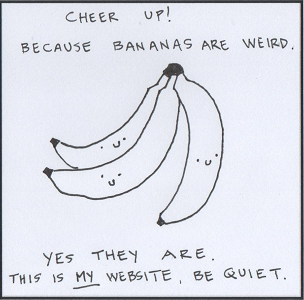 CHEER UP!
BECAUSE BANANAS ARE WEIRD.
YES THEY ARE.
THIS IS MY WEBSITE, BE QUIET.